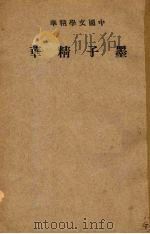 中國文學精華
墨子精華